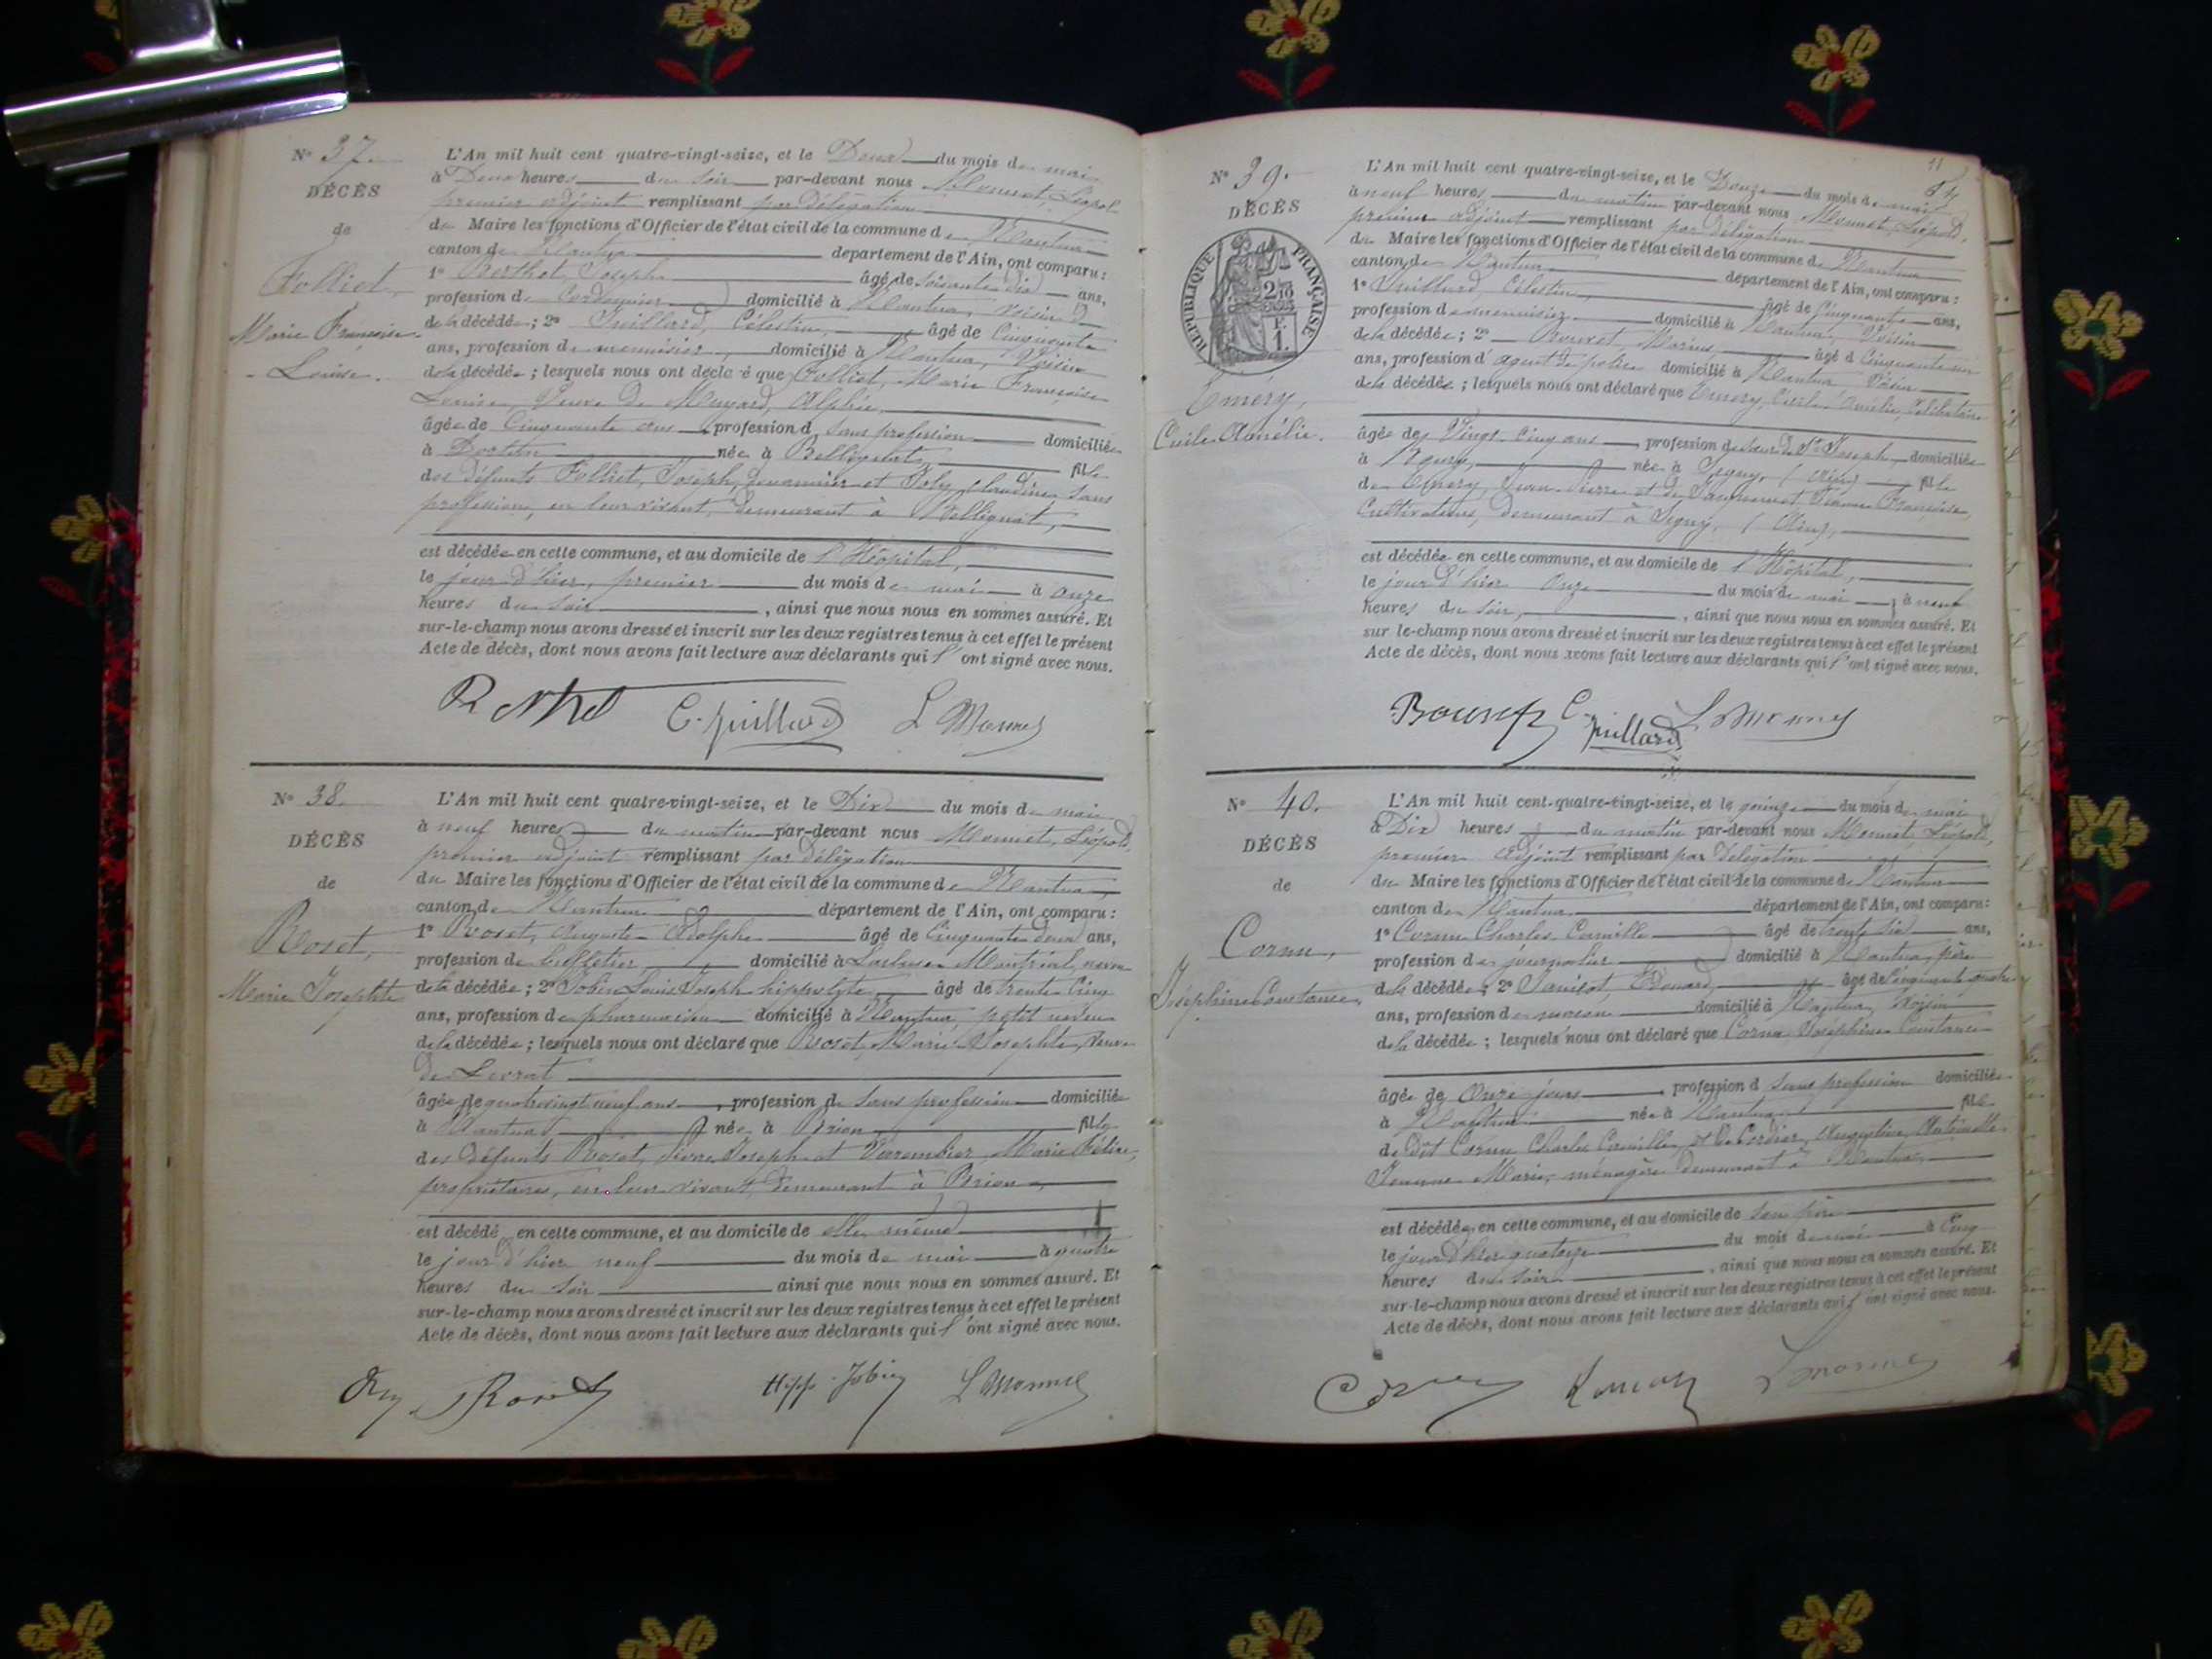 N° 37.
DÉCÈS
de
Folliet,
Marie Françoise
Louise.
L'An mil huit cent quatre-vingt-seize, et le Deux du mois de mai
à Deux heures du soir par-devant nous Monnet, Léopol
premier adjoint remplissant par délégation
du Maire les fonctions d'Officier de l'état civil de la commune de Nantua
canton de Nantua département de l'Ain, ont comparu :
1° Berthet Joseph âgé de soixante dix ans,
profession de Cordonnier domicilié à Nantua, voisin
de la décédée ; 2° Juillard, Célestin, âgé de Cinquante
ans, profession de menuisier, domicilié à Nantua, voisin
de la décédée ; lesquels nous ont déclaré que Folliet, Marie Françoise
Louise, Veuve de Alphée
âgée de Cinquante ans profession d sans profession domiciliée
à Dortan née à Bellignat, fille
des défunts Folliet, Joseph, douannier et Joly, Claudine, sans
profession, en leur vivant, demeurant à Bellignat,
est décédée en cette commune, et au domicile de l'Hôpital,
le jour d'hier, premier du mois de mai à onze
heures du soir, ainsi que nous nous en sommes assuré. Et
sur-le-champ nous avons dressé et inscrit sur les deux registres tenus à cet effet le présent
Acte de décès, dont nous avons fait lecture aux déclarants qui l'ont signé avec nous.
C. Juillard L Monnet
N° 38.
DÉCÈS
de
Rosset,
Marie Josephte
L'An mil huit cent quatre-vingt-seize, et le Dix du mois de mai
à neuf heures du matin par-devant nous Monnet, Léopold,
premier adjoint remplissant par délégation
du Maire les fonctions d'Officier de l'état civil de la commune de Nantua,
canton de Nantua département de l'Ain, ont comparu :
1° Rosset, Auguste Adolphe âgé de Cinquante deux ans,
profession de buffetier domicilié à Lacluse Montréal, neveu
de la décédée ; 2° Jobin Louis Joseph hippolyte âgé de trente Cinq
ans, profession de pharmacien domicilié à Nantua, petit neveu
de la décédée ; lesquels nous ont déclaré que Rosset, Marie Josephte, veuve
de Levrat
âgée de quatre vingt neuf ans, profession de sans profession domiciliée
à Nantua née à Brion, fille
des défunts Rosset, Pierre Joseph et Marie
propriétaires, en leur vivant, demeurant à Brion,
est décédé en cette commune, et au domicile de elle même
le jour d'hier neuf du mois de mai à quatre
heures du soir ainsi que nous nous en sommes assuré. Et
sur-le-champ nous avons dressé et inscrit sur les deux registres tenus à cet effet le présent
Acte de décès, dont nous avons fait lecture aux déclarants qui l'ont signé avec nous.
Hipp. Jobin L Monnet
11
N° 39.
DÉCÈS
RÉPUBLIQUE FRANÇAISE
Emery,
Cécile Amélie.
L'An mil huit cent quatre-vingt-seize, et le Douze du mois de mai
à neuf heures du matin par-devant nous Monnet, Léopold,
premier adjoint remplissant par délégation
du Maire les fonctions d'Officier de l'état civil de la commune de Nantua
canton de Nantua département de l'Ain, ont comparu :
1° Juillard, Célestin, âgé de Cinquante ans,
profession de menuisier domicilié à Nantua, Voisin
de la décédée ; 2° Bouvret, Marius, âgé d Cinquante un
ans, profession d'agent de police domicilié à Nantua Voisin
de la décédée ; lesquels nous ont déclaré que Emery, Cécile Amélie, célibataire
âgée de Vingt-Cinq ans, profession de sœur de St Joseph, domiciliée
à née à Segny, (Ain) fille
de Emery, Jean Pierre et de Françoise,
Cultivateurs, demeurant à Segny, (Ain),
est décédée en cette commune, et au domicile de l'Hôpital,
le jour d'hier onze du mois de mai, à neuf
heures du soir, ainsi que nous nous en sommes assuré. Et
sur le-champ nous avons dressé et inscrit sur les deux registres tenus à cet effet le présent
Acte de décès, dont nous avons fait lecture aux déclarants qui l'ont signé avec nous.
C. Juillard L Monnet
N° 40.
DÉCÈS
de
Cornu,
Joséphine Constance,
L'An mil huit cent-quatre-vingt-seize, et le quinze du mois de mai
à Dix heures du matin par-devant nous Monnet, Léopold,
premier adjoint remplissant par délégation
du Maire les fonctions d'Officier de l'état civil de la commune de Nantua
canton de Nantua département de l'Ain, ont comparu :
1° Cornu Charles Camille âgé de trente six ans,
profession de journalier domicilié à Nantua, père
de la décédée ; 2° Edouard, âgé de Cinquante quatre
ans, profession de domicilié à Nantua, voisin
de la décédée ; lesquels nous ont déclaré que Cornu Joséphine Constance
âgée de Onze jours, profession d sans profession domiciliée
à Nantua née à Nantua, fille
de dit Cornu Charles Camille, et de Cordier, Augustine, Antoinette
Jeanne Marie, ménagère demeurant à Nantua,
est décédée en cette commune, et au domicile de son père
le jour d'hier quatorze du mois de mai à Cinq
heures du soir, ainsi que nous nous en sommes assuré. Et
sur-le-champ nous avons dressé et inscrit sur les deux registres tenus à cet effet le présent
Acte de décès, dont nous avons fait lecture aux déclarants qui l'ont signé avec nous.
L Monnet